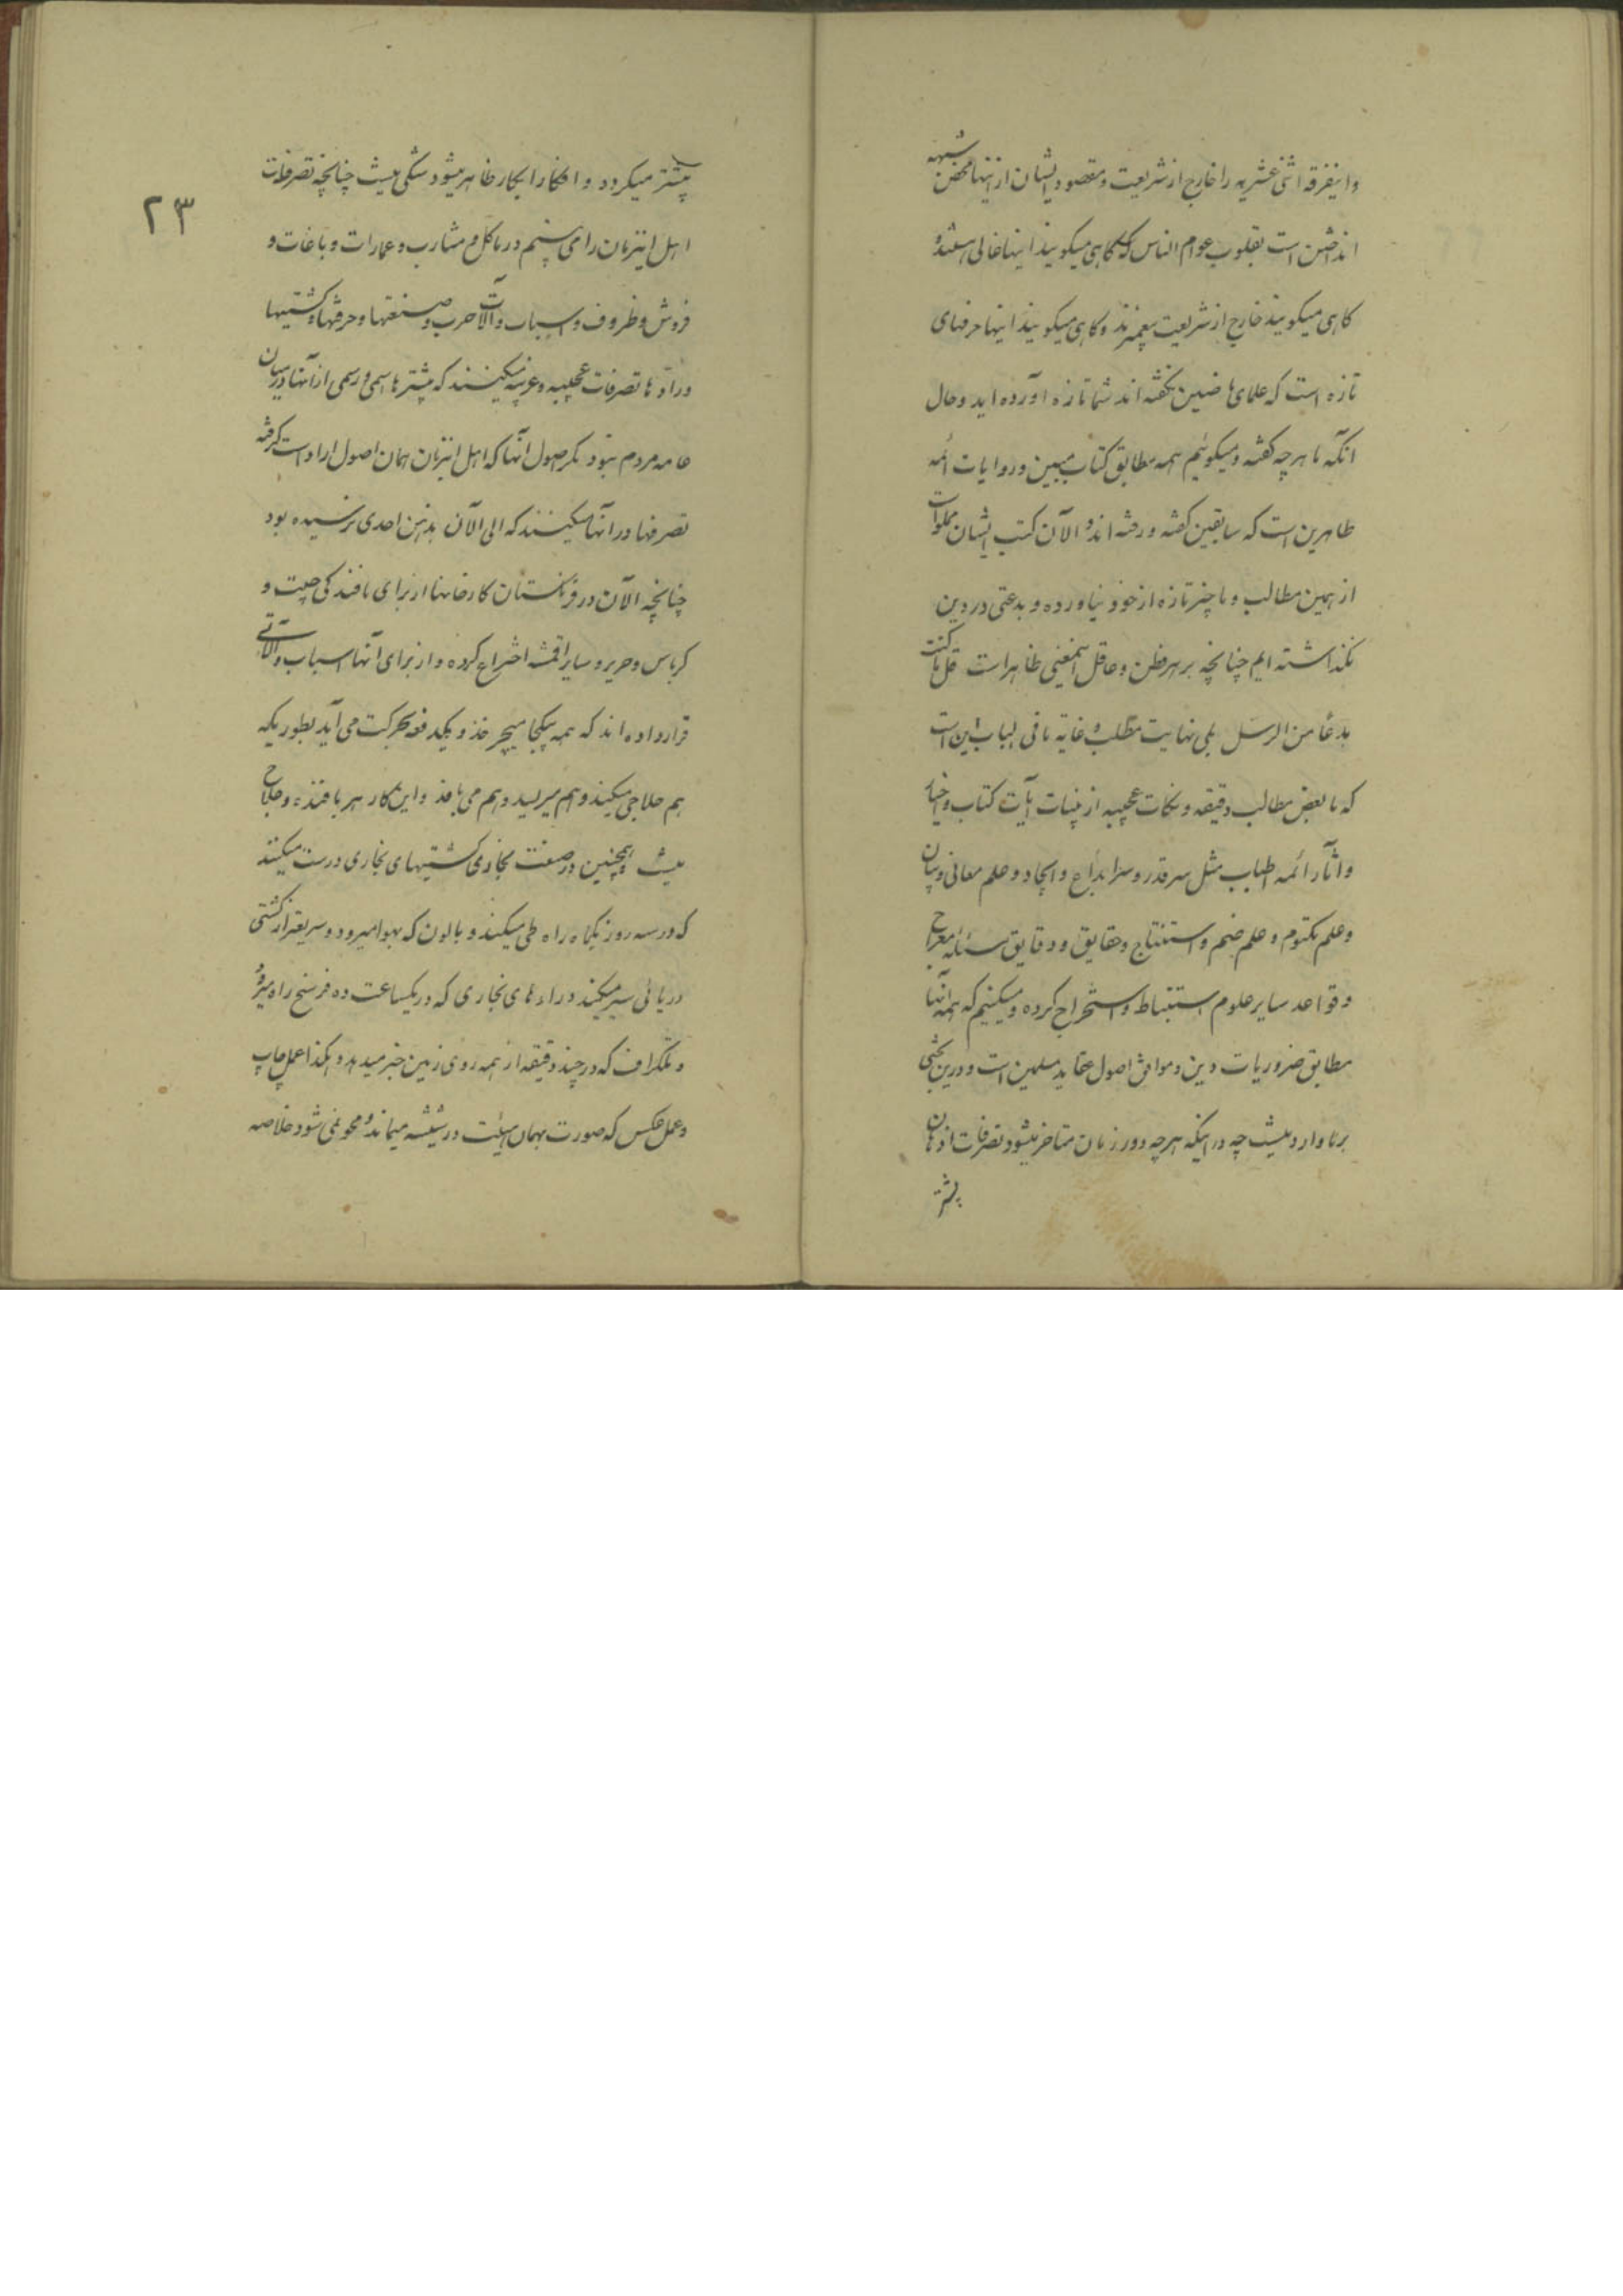 و اینفرقه اثنی عشریه را خارج از شریعت و مقصود ایشان از اینها محض شبهه
انداختن است بقلوب عوام الناس که گاهی میگویند اینها غالی هستند و
گاهی میگویند خارج از شریعت پیغمبرند و گاهی میگویند اینها حرفهای
تازه است که علمای ماضین نگفته اند شما تازه آورده اید و حال
آنکه ما هر چه گفته و میگوئیم همه مطابق کتاب مبین و روایات ائمه
طاهرین است که سابقین گفته و رفته اند و الآن کتب ایشان مملو است
از همین مطالب و ما چیز تازه از خود نیاورده و بدعتی در دین
نگذاشته ایم چنانچه بر هر فطن و عاقل اینمعنی ظاهر است قل ما کنت
بدعا من الرسل بلی نهایت مطلب و غایة ما فی الباب این است
که ما بعض مطالب دقیقه و نکات عجیبه از بینات آیات کتاب و اخبار
و آثار ائمه اطیاب مثل سر قدر و سر ابداع و ایجاد و علم معانی و بیان
و علم مکتوم و علم ضم و استنتاج و حقایق و دقایق مسئله معراج
و قواعد سایر علوم استنباط و استخراج کرده و میکنیم که همه آنها
مطابق ضروریات دین و موافق اصول عقاید مسلمین است و در این بحثی
بر ما وارد نیست چه در اینکه هر چه دور زمان متاخر میشود تصرفات اذهان
بیشتر
۲۳
بیشتر میگردد و افکار ابکار ظاهر میشود شکی نیست چنانچه تصرفات
اهل اینزمان را می بینیم در مآکل و مشارب و عمارات و باغات و
فروش و ظروف و اسباب و آلات حرب و صنعتها و حرفتها و کشتیها
و راه ها تصرفات عجیبه و غریبه میکنند که پیشترها اسمی و رسمی از آنها در میان
عامه مردم نبود مگر اصول آنها که اهل اینزمان همان اصول را دست گرفته
تصرفها در آنها میکنند که الی الآن بذهن احدی نرسیده بود
چنانچه الآن در فرنگستان کارخانها از برای بافندگی چیت و
کرباس و حریر و سایر اقمشه اختراع کرده و از برای آنها اسباب و آلاتی
قرار داده اند که همه بیکجا میچرخند و یکدفعه بحرکت می آید بطوریکه
هم حلاجی میکند و هم میریسد و هم می بافد و این کار هر بافنده و حلاج
نیست و همچنین در صنعت نجاری کشتیهای بخاری درست میکنند
که در سه روز یکماه راه طی میکند و بالون که بهوا میرود و سریعتر از کشتی
دریائی سیر میکند و راه های بخاری که در یکساعت ده فرسخ راه میرود
و تلگراف که در چند دقیقه از همه روی زمین خبر میدهد و هکذا عمل چاپ
و عمل عکس که صورت بهمان هیئت در شیشه میماند و محو نمی شود خلاصه